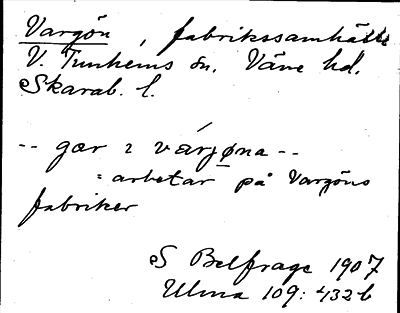 Vargön, fabrikssamhälle
V. Tunhems sn. Väne hd.
Skarab. l.
-- gær ı várjøna --
= arbetar på Vargöns
fabriker
S Belfrage 1907
Ulma 109: 432 b